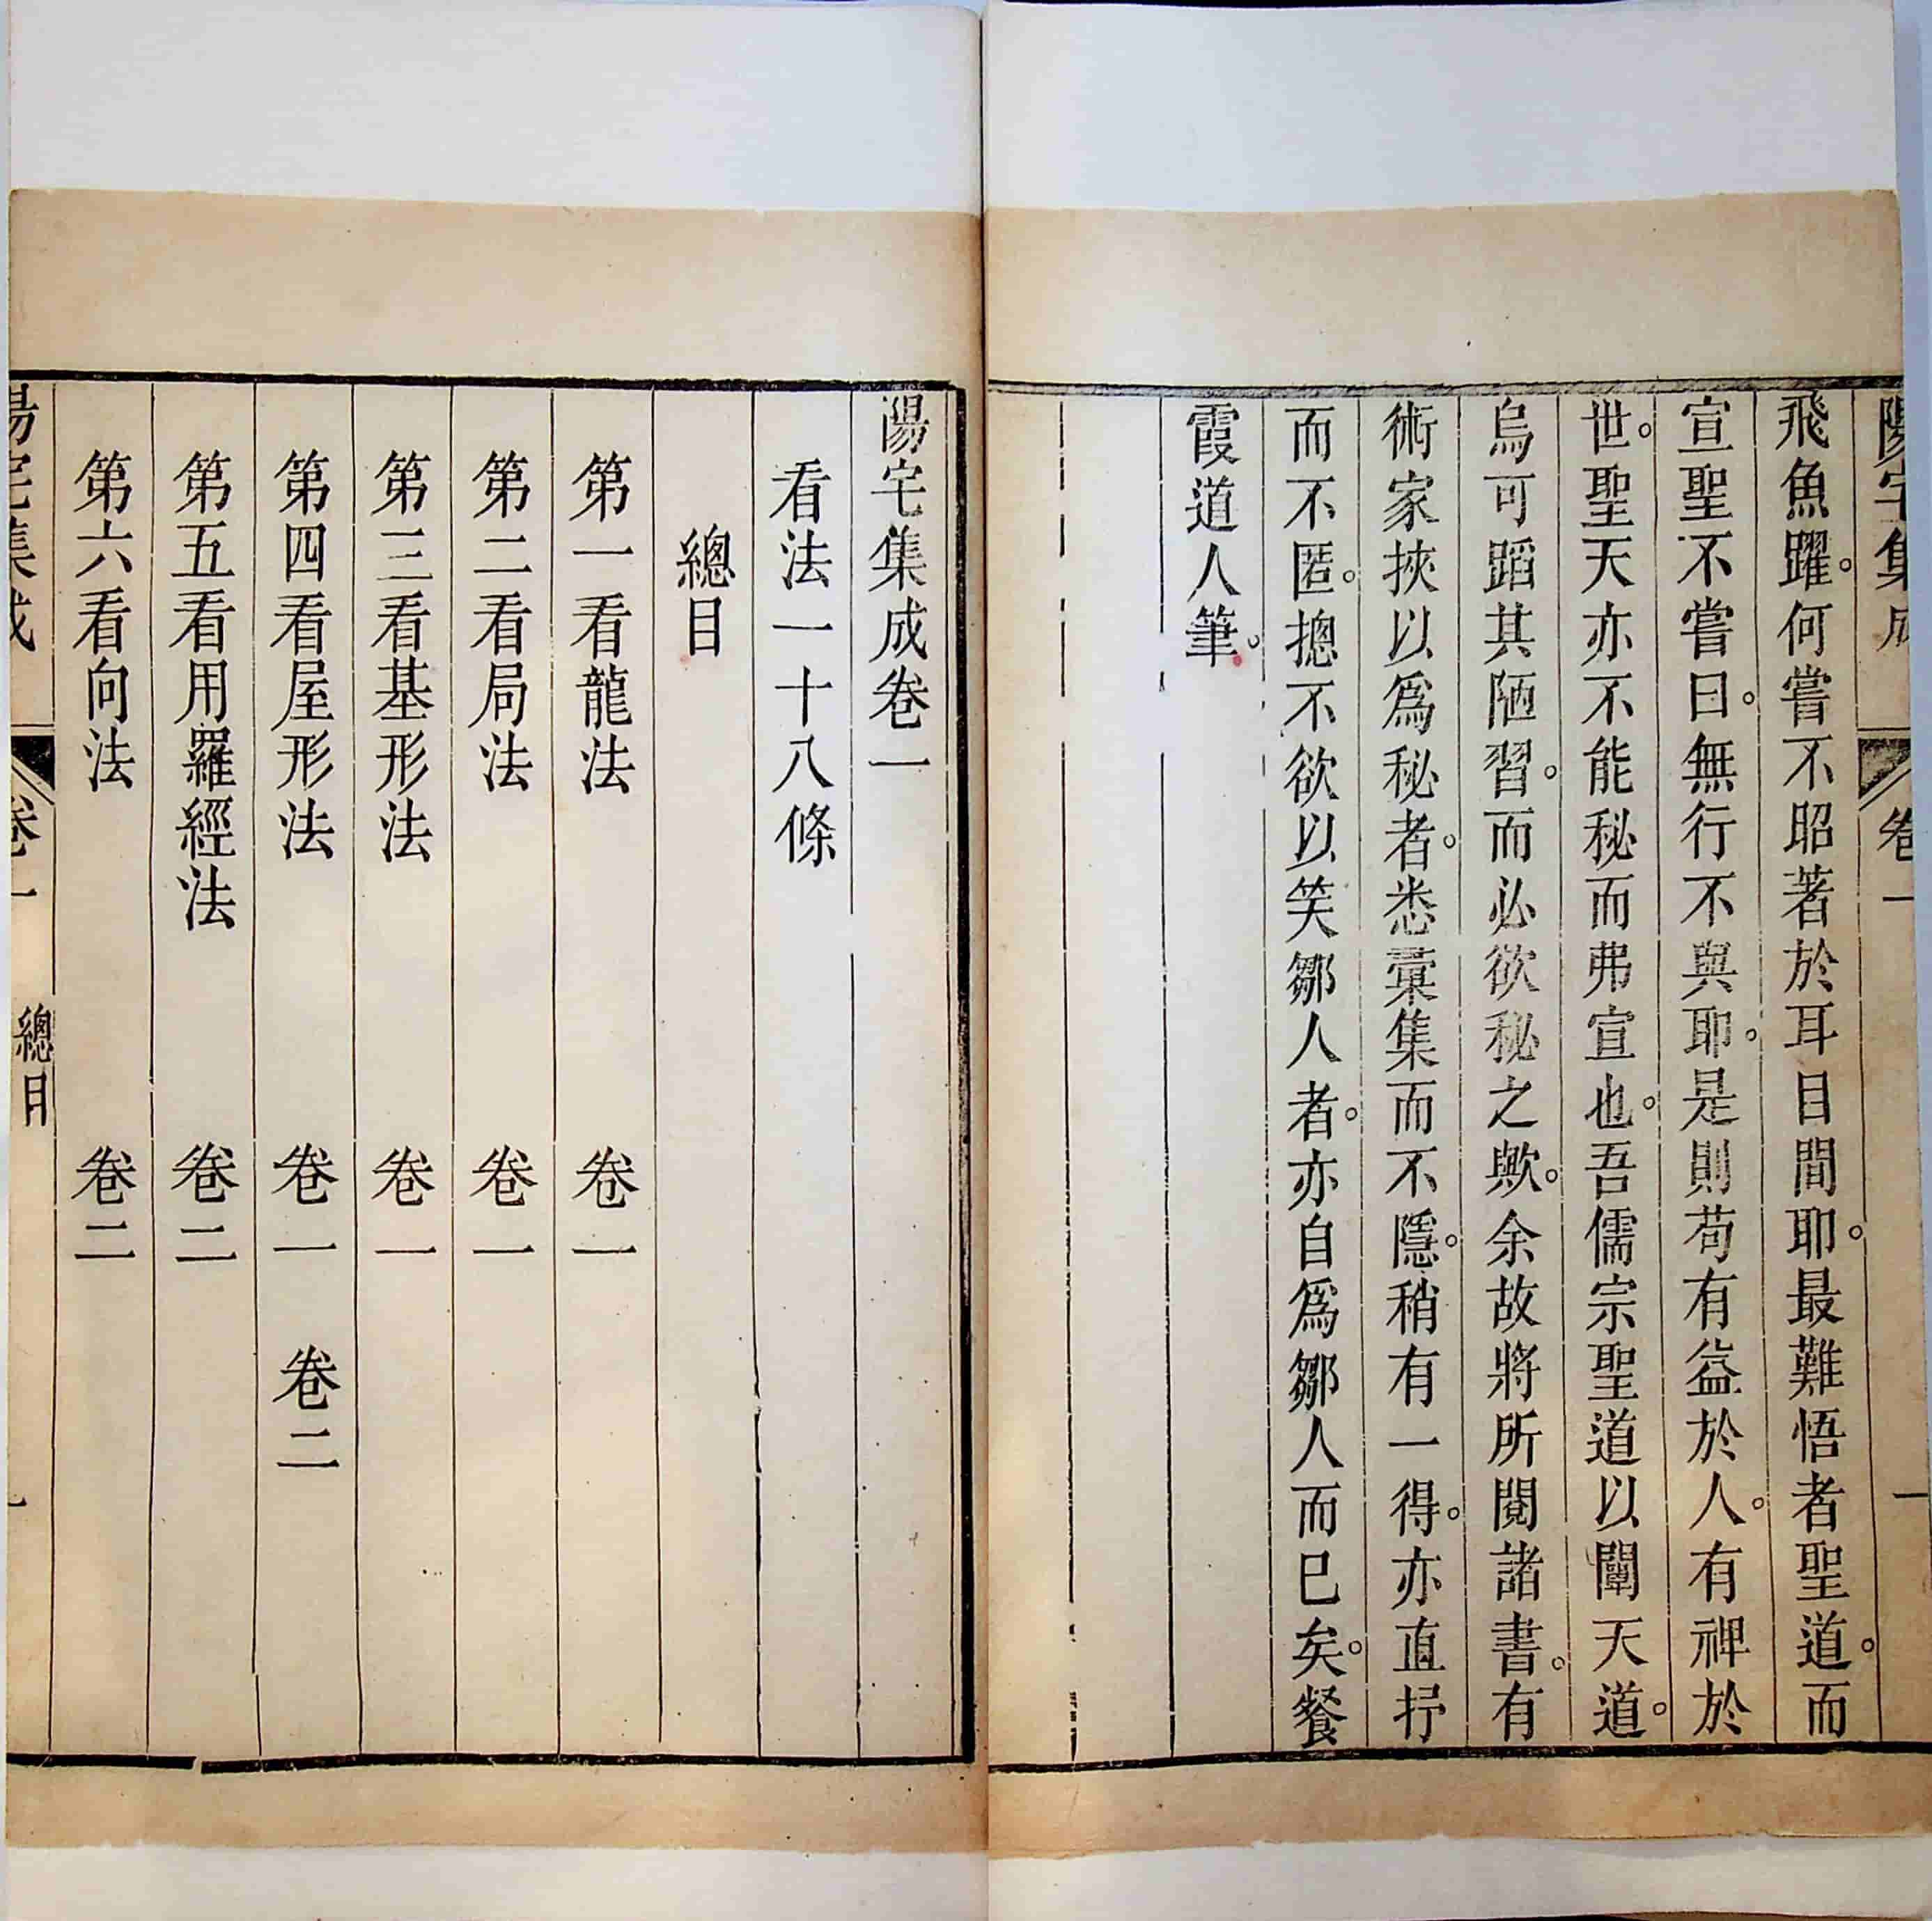 陽宅集成 卷一 一
飛魚躍。何嘗不昭著於耳目間耶。最難悟者聖道。而
宣聖不嘗曰。無行不與耶。是則苟有益於人。有裨於
世。聖天亦不能秘而弗宣也。吾儒宗聖道以闡天道。
烏可蹈其陋習。而必欲秘之歟。余故將所閱諸書。有
術家挾以爲秘者。悉彙集而不隱。稍有一得。亦直抒
而不匿。摠不欲以笑鄒人者。亦自爲鄒人而已矣。餐
霞道人筆。
陽宅集成卷一
看法一十八條
總目
第一看龍法 卷一
第二看局法 卷一
第三看基形法 卷一
第四看屋形法 卷一 卷二
第五看用羅經法 卷二
第六看向法 卷二
陽宅集成 卷一 總目